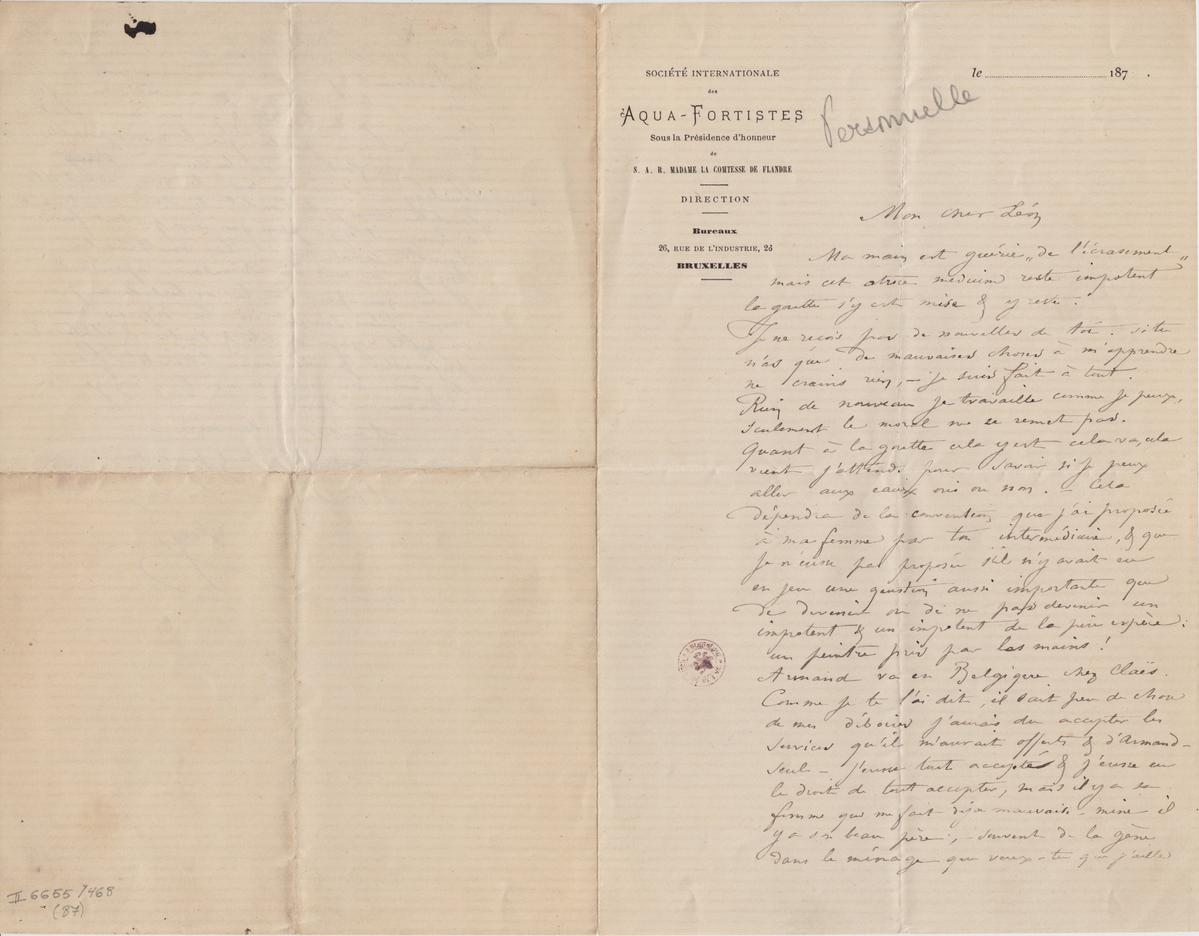 SOCIÉTÉ INTERNATIONALE
des
AQUA-FORTISTES
Sous la Présidence d'honneur
de
S. A. R. MADAME LA COMTESSE DE FLANDRE
DIRECTION
Bureaux
26, RUE DE L'INDUSTRIE, 26
BRUXELLES
le 187 .
Personnelle
Mon cher Léon
Ma main est guérie „de l'écrasement„
mais cet atroce medium reste impotent
la goutte s'y est mise & y reste.
Je ne reçois pas de nouvelles de toi : si tu
n'as que de mauvaises choses à m'apprendre
ne crains rien, – je suis fait à tout.
Rien de nouveau je travaille comme je peux,
seulement le moral ne se remet pas.
Quant à la goutte cela y est cela va, cela
vient j'attends pour savoir si je peux
aller aux eaux oui ou non. – Cela
dépendra de la convention que j'ai proposée
à ma femme par ton intermédiaire, & que
je n'eusse pas proposée s'il n'y avait eu
en jeu une question aussi importante que
de devenir ou de ne pas devenir un
impotent & un impotent de la pire espèce :
un peintre pris par les mains !
Armand va en Belgique chez Claës.
Comme je te l'ai dit, il sait peu de chose
de mes déboires j'aurais du accepter les
services qu'il m'aurait offerts & d'Armand –
seul – j'eusse tout accepté & j'eusse eu
le droit de tout accepter, mais il y a sa
femme qui me fait déjà mauvaise mine il
y a son beau père, souvent de la gêne
dans le ménage que veux-tu que j'aille
II 6655/468
(87)